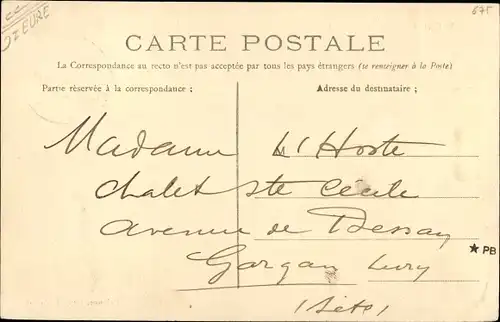 CC
27 EURE
675
CARTE POSTALE
La Correspondance au recto n'est pas acceptée par tous les pays étrangers (se renseigner à la Poste)
Partie réservée à la correspondance :
Adresse du destinataire ;
Madame L'Hoste
chalet Ste Cécile
avenue de Dessay
★ PB
Gargan Livry
(S et O)